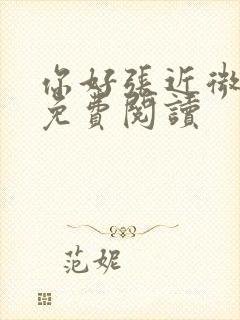 你好張近微
免費閱讀
范妮